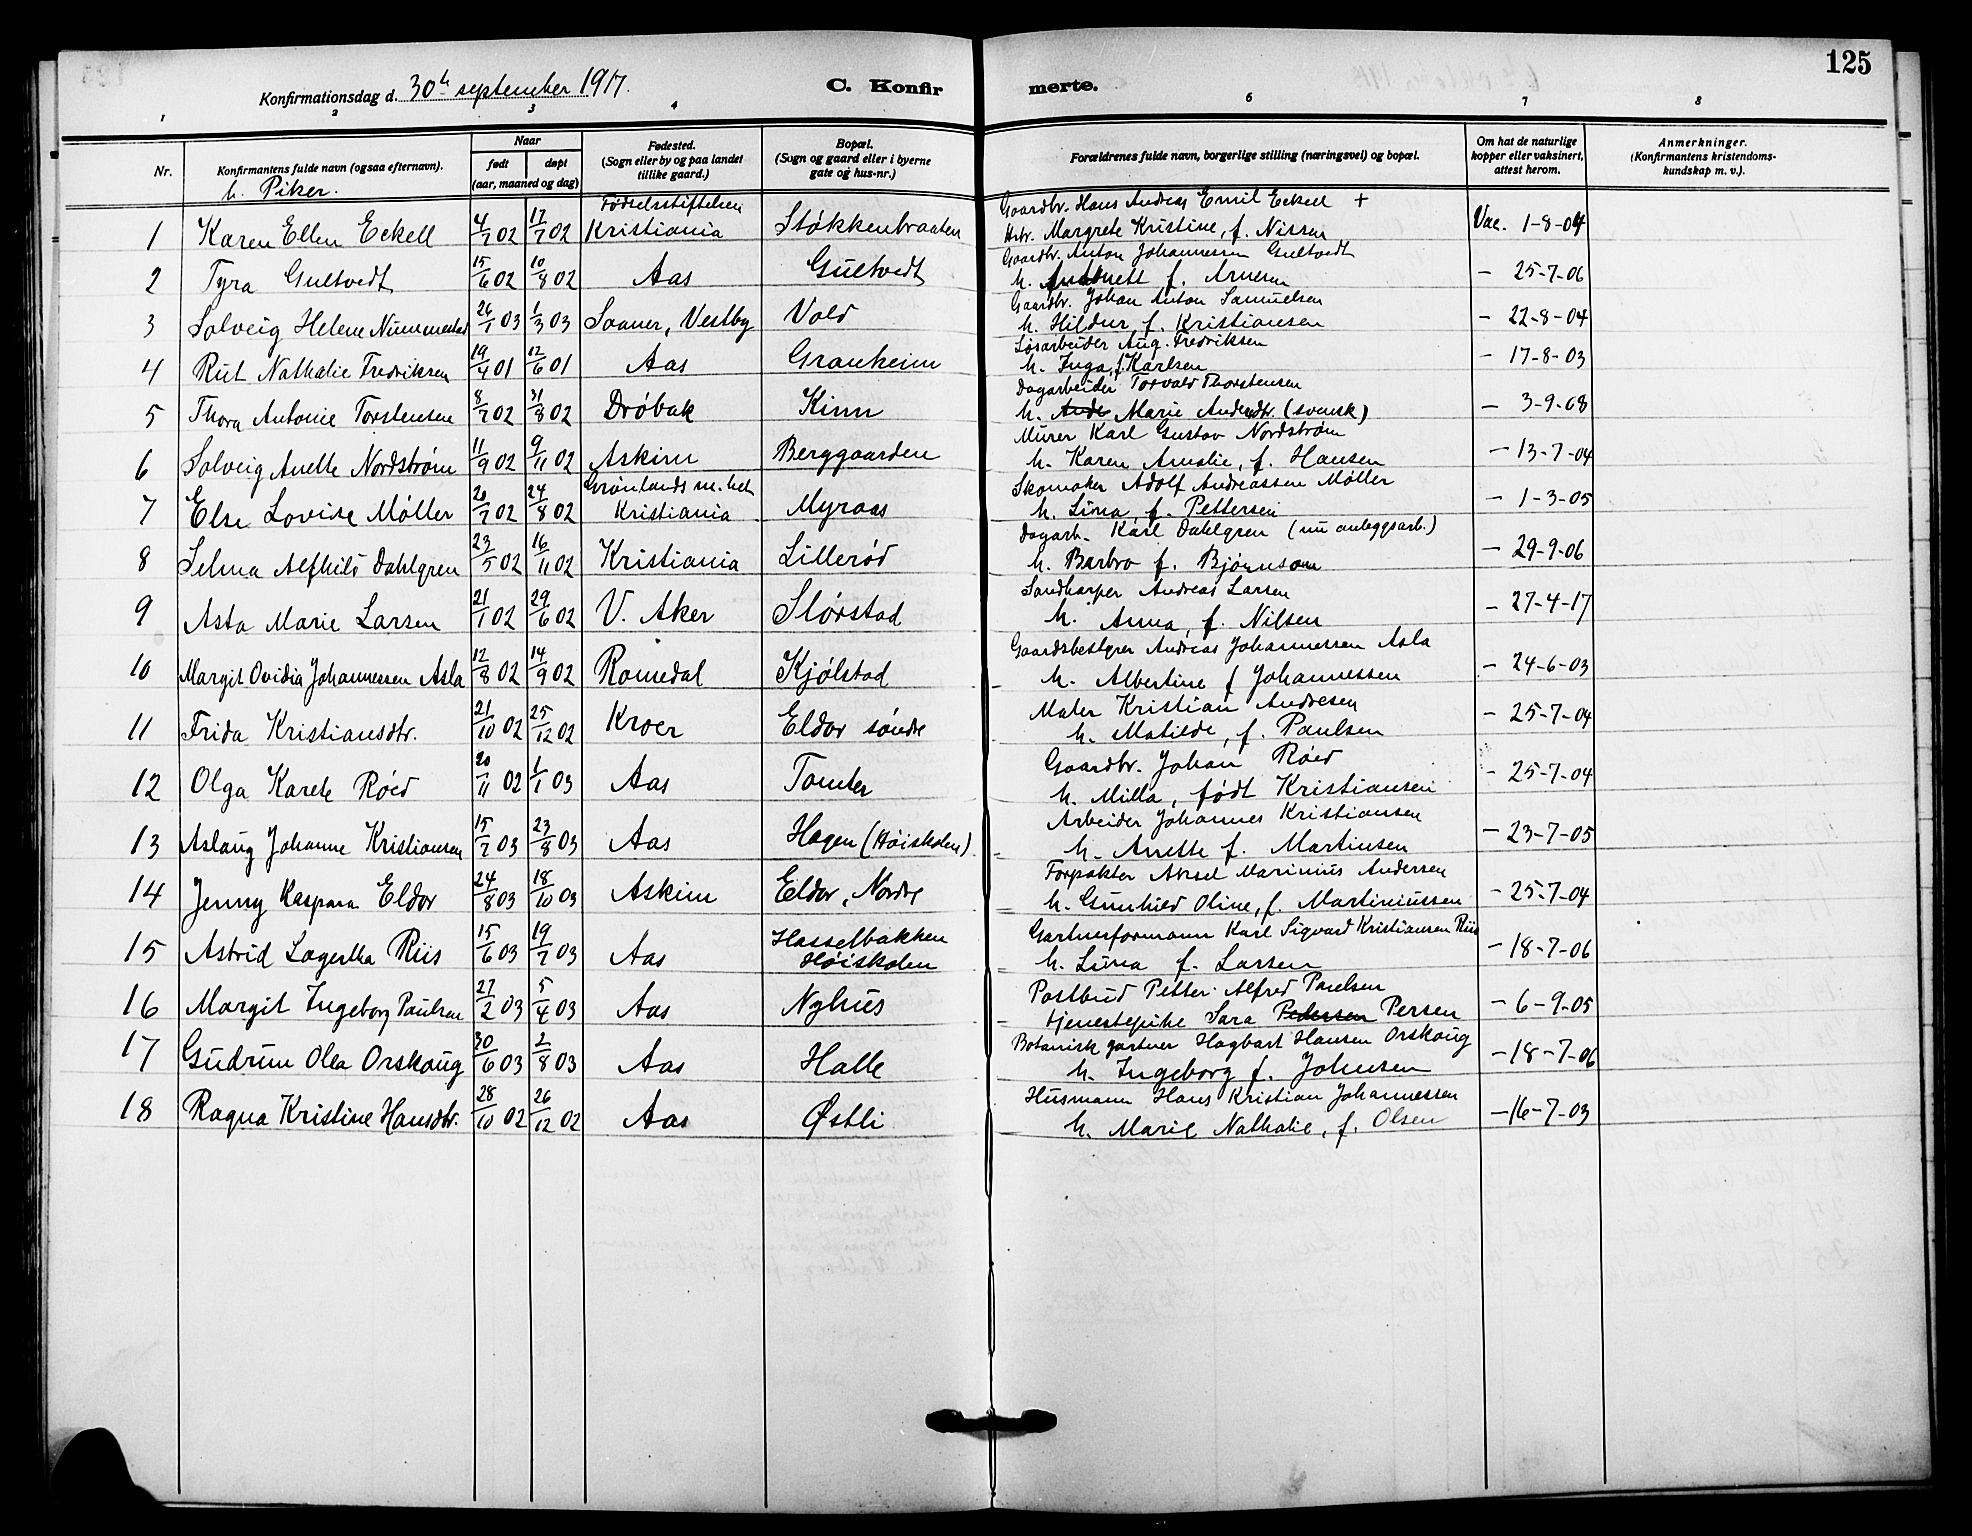 125
Konfirmationsdag d. 30th september 1917.
C. Konfirmerte.
1 2 3 4 6 7 8
Nr.
Konfirmantens fulde navn (ogsaa efternavn).
Naar
født
døpt
(aar, maaned og dag)
Fødested.
(Sogn eller by og paa landet
tillike gaard.)
Bopæl.
(Sogn og gaard eller i byerne
gate og hus-nr.)
Forældrenes fulde navn, borgerlige stilling (næringsvei) og bopæl.
Om hat de naturlige
kopper eller vaksinert,
attest herom.
Anmerkninger.
(Konfirmantens kristendoms-
kundskap m. v.).
b. Piker.
1 Karen Ellen Eckell 4/7 02 17/7 02 Fødselsstiftelsen Kristiania Støkkenbraaten Gaardbr. Hans Andreas Emil Eckell +
Hstr. Margrete Kristine, f. Nissen Vac. 1-8-04
2 Tyra Gultvedt 15/6 02 10/8 02 Aas Gultvedt Gaardbr. Anton Johannessen Gultvedt
h. f. Arnesen — 25-7-06
3 Solveig Helene Nummestad 26/1 03 1/3 03 Soner, Vestby Vold Gaardbr. Johan Anton Samuelsen
h. Hildur, f. Kristiansen — 22-8-04
4 Rut Nathalie Fredriksen 19/4 01 12/6 01 Aas Granheim Løsarbeider Aug. Fredriksen
h. Inga, f. Karlsen — 17-8-03
5 Thora Antonie Torstensen 8/7 02 31/8 02 Drøbak Kinn Dagarbeider Torvald Thorstensen
h. Ande Marie Andersdtr. (svensk) — 3-9-08
6 Solveig Anette Nordstrøm 11/9 02 9/11 02 Askim Berggaarden Murer Karl Gustav Nordstrøm
h. Karen Amalie, f. Hansen — 13-7-04
7 Else Lovise Møller 20/7 02 24/8 02 Grønlands m.het Kristiania Myraas Skomaker Adolf Andreassen Møller
h. Lina, f. Pettersen — 1-3-05
8 Selma Alfhild Dahlgren 23/5 02 16/11 02 Kristiania Lillerød Dagarb. Karl Dahlgren (nu anleggsarb.)
h. Barbro f. Bjørnson — 29-9-06
9 Asta Marie Larsen 21/1 02 29/6 02 V. Aker Størstad Sandharper Andreas Larsen
h. Anna, f. Nilsen — 27-4-17
10 Margit Ovidia Johannessen Asla 12/8 02 14/9 02 Romedal Kjølstad Gaardsbestyrer Andreas Johannessen Asla
h. Albertine f Johannessen — 24-6-03
11 Frida Kristiansdtr. 21/10 02 25/12 02 Kroer Eldor søndre Maler Kristian Andresen
h. Matilde, f. Paulsen — 25-7-04
12 Olga Karete Røed 20/11 02 1/1 03 Aas Tomter Gaardbr. Johan Røed
h. Milla, født Kristiansen — 25-7-04
13 Aslaug Johanne Kristiansen 15/7 03 23/8 03 Aas Hagen (Høiskolen) Arbeider Johannes Kristiansen
h. Anette f. Martinsen — 23-7-05
14 Jenny Kaspara Eldor 24/8 03 18/10 03 Askim Eldor, Nordre Forpakter Aksel Marinius Andersen
h. Gunhild Oline, f. Martiniussen — 25-7-04
15 Astrid Lagertha Riis 15/6 03 19/7 03 Aas Hasselbakken Høiskolen Gartnerformann Karl Sigvard Kristiansen Riis
h. Lina f. Larsen — 18-7-06
16 Margit Ingeborg Paulsen 27/2 03 5/4 03 Aas Nyhus Postbud Petter Alfred Paulsen
tjenestepike Sara Pedersen Persen — 6-9-05
17 Gudrun Olea Orskaug 30/6 03 2/8 03 Aas Halle Botanisk gartner Hagbart Hansen Orskaug
h. Ingeborg f. Johnsen — 18-7-06
18 Ragna Kristine Hansdtr. 28/10 02 26/12 02 Aas Østli Husmann Hans Kristian Johannessen
h. Marie Nathalie, f. Olsen — 16-7-03